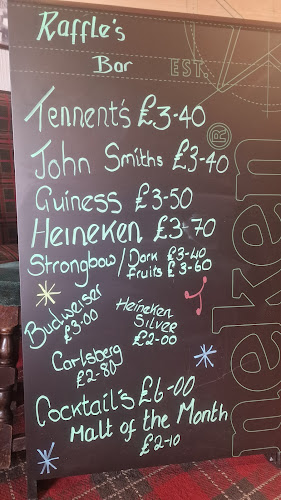 Raffle's
Bar
EST.
Tennent's £3-40
John Smiths £3-40
Guiness £3-50
Heineken £3-70
Strongbow/Dark £3-40
Fruits £3-60
Budweiser
£3-00
Heineken
Silver
£2-00
Carlsberg
£2-80
Cocktail's £6-00
Malt of the Month
£2-10
neken®